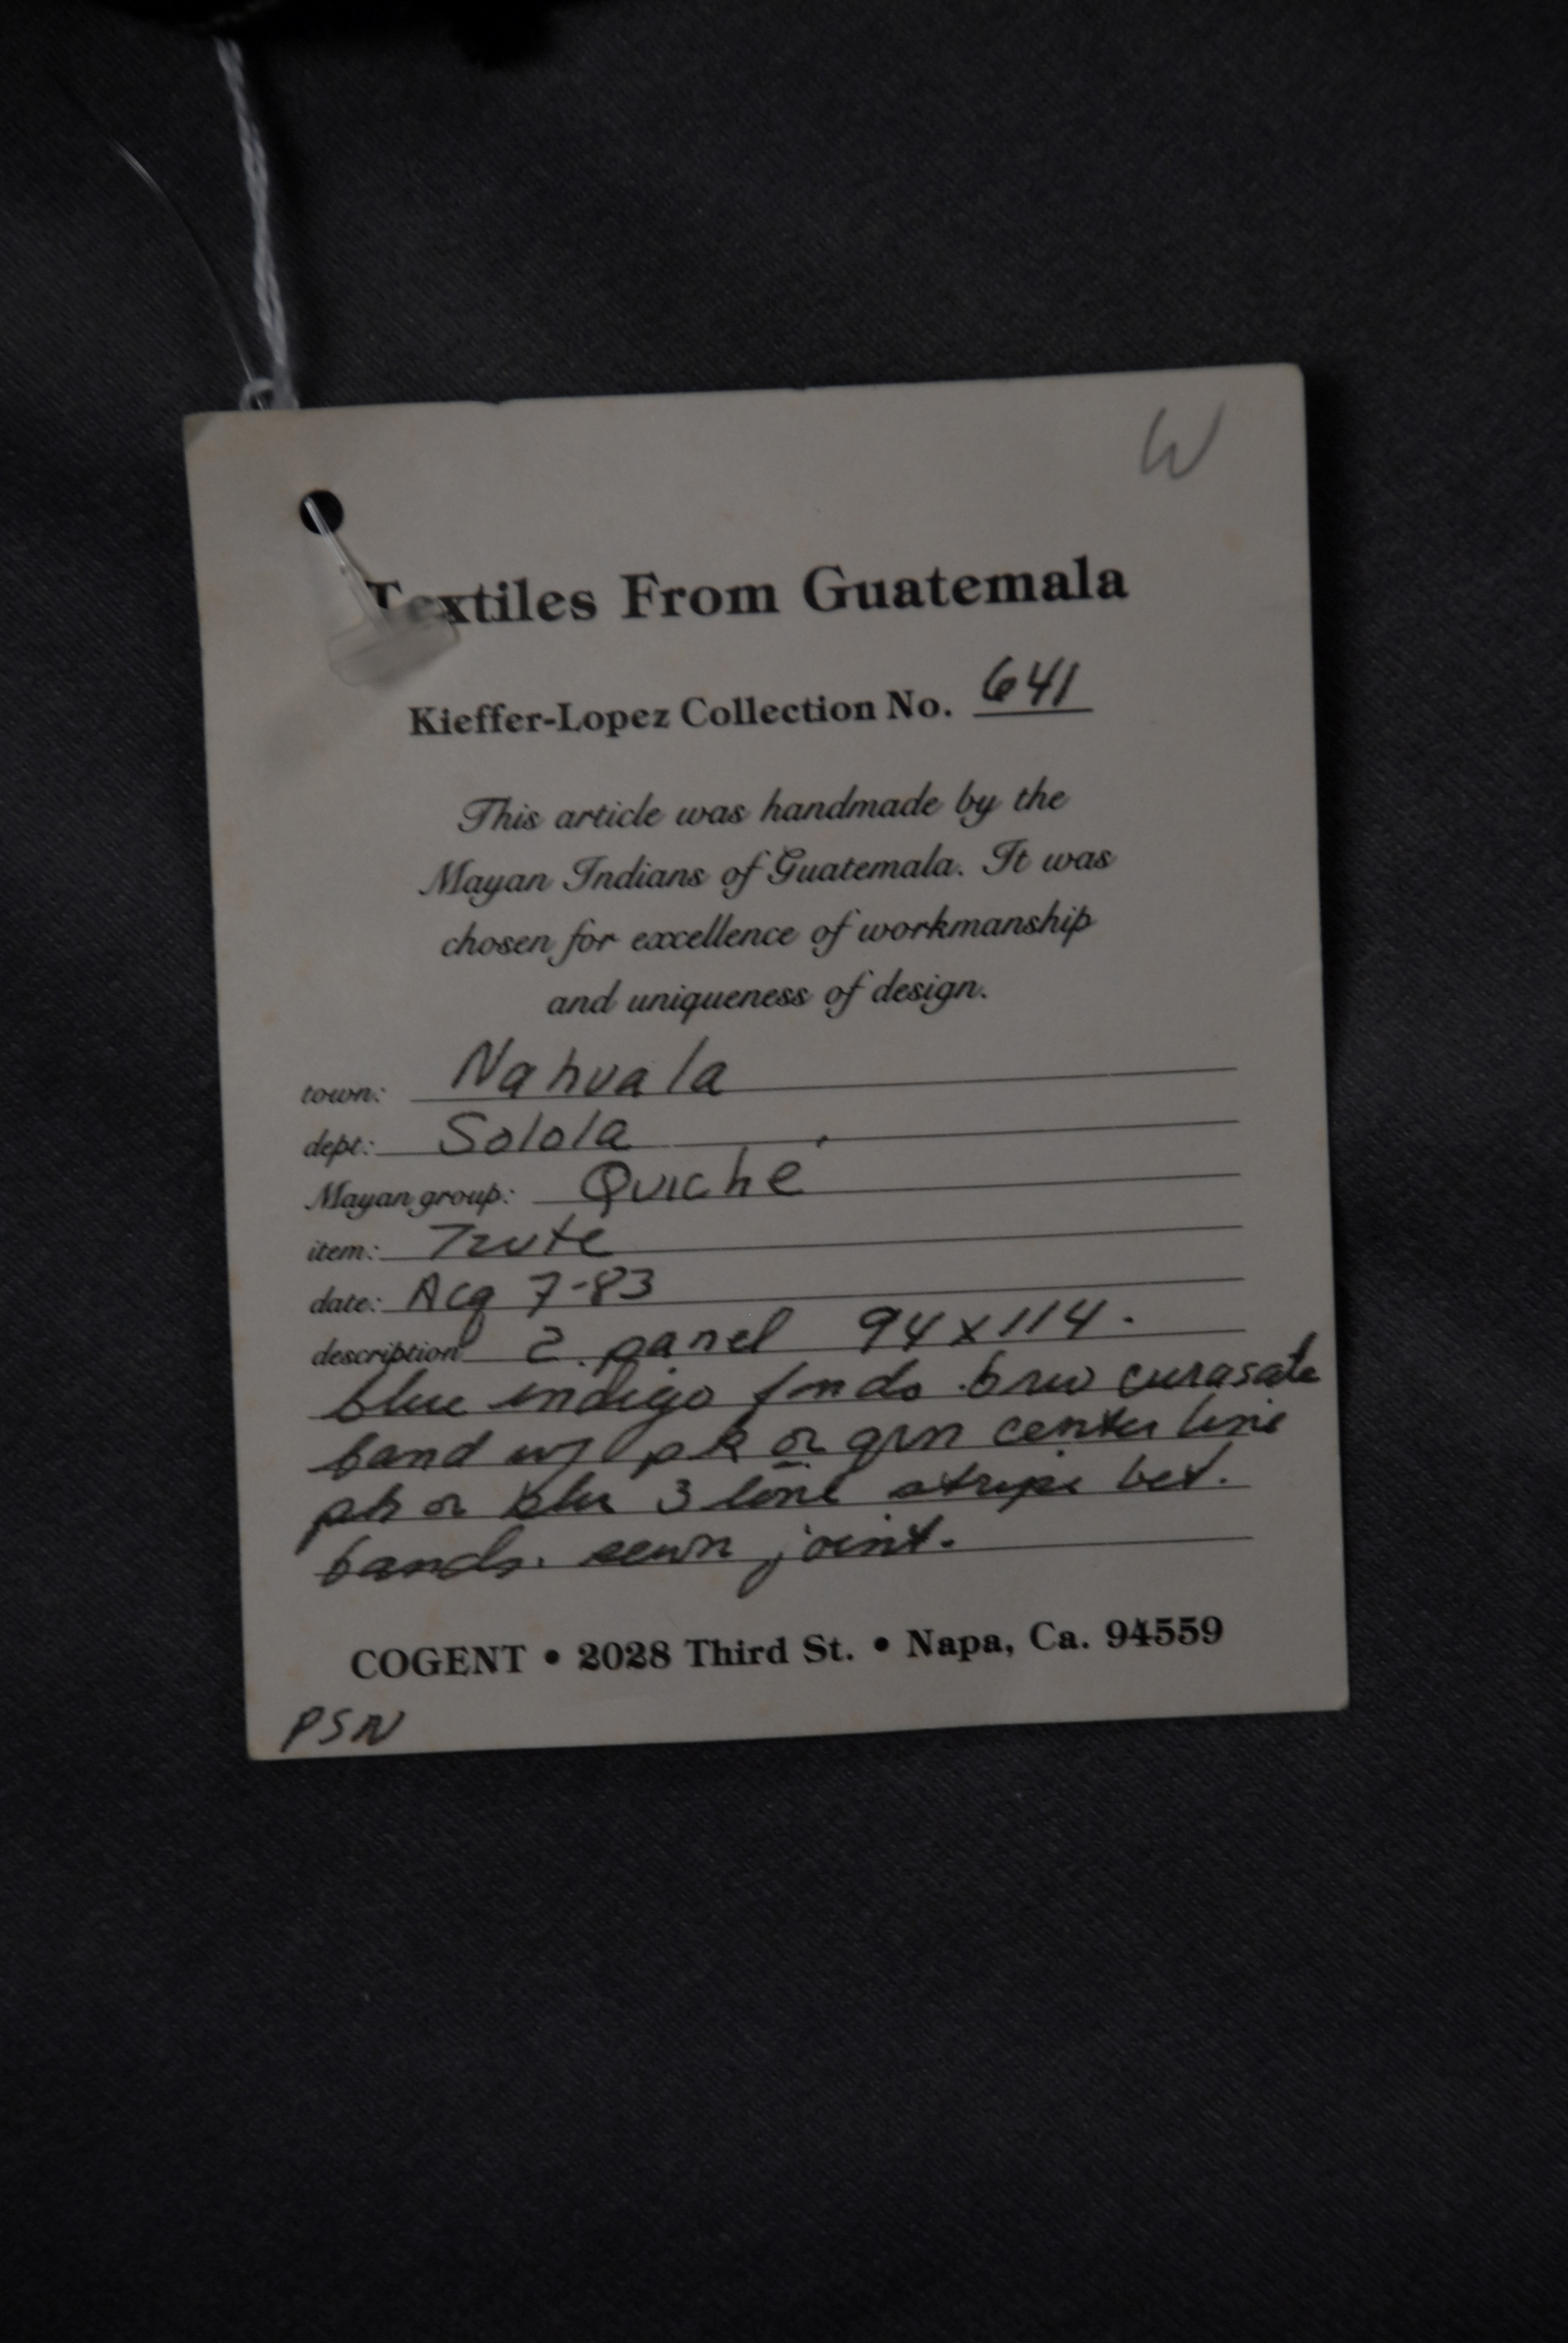 W
Textiles From Guatemala
Kieffer-Lopez Collection No. 641
This article was handmade by the
Mayan Indians of Guatemala. It was
chosen for excellence of workmanship
and uniqueness of design.
town: Nahuala
dept: Solola
Mayan group: Quiché
item: Tzute
date: Acq 7-83
description 2 panel 94x114.
blue indigo fondo. brw cuyascate
band w/ pk or grn center line
pk or blu 3 line stripe bet.
bands. sewn joint.
COGENT • 2028 Third St. • Napa, Ca. 94559
PSN